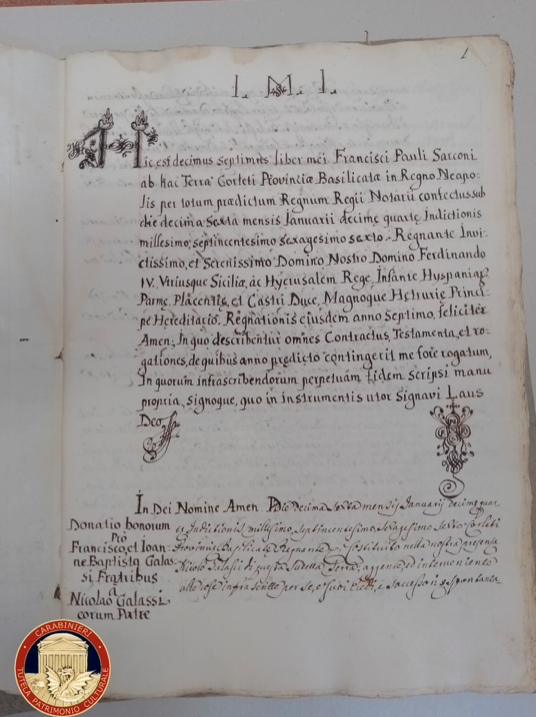 1
I. M. I.
Hic est decimus septimus liber mei Francisci Pauli Sarconi
ab hac Terra Corleti Provinciæ Basilicatæ in Regno Neapo=
lis per totum prædictum Regnum Regii Notarii confectus sub
die decima sexta mensis Januarii decimę quartę Indictionis
millesimo, septincentesimo sexagesimo sexto. Regnante Invi=
ctissimo, et Serenissimo Domino Nostro Domino Ferdinando
IV. Utriusque Siciliæ, ac Hyerusalem Rege, Infante Hyspaniar.
Parmę, Placentię, et Castri Duce, Magnoque Hętrurię Princi=
pe Hereditario, Regnationis ejusdem anno Septimo, feliciter
Amen. In quo describentur omnes Contractus, Testamenta, et ro=
gationes, de quibus anno prædicto contingerit me fore rogatum,
In quorum infrascribendorum perpetuam fidem scripsi manu
propria, signoque, quo in instrumentis utor signavi Laus
Deo
In Dei Nomine Amen. Die decima sexta mensis Januarij decimę quar=
Donatio bonorum
Pro
Francisco, et Ioan=
ne Baptista Galas=
si Fratribus
a
Nicolao Galassi
eorum Patre
tę Indictionis millesimo, septincentesimo, sexagesimo sexto Corleti
Provinciæ Basilicatę Regnante
Costituito nella nostra presenza
Nicolò Galassi di questa sudetta Terra, aggente, ed interveniente
alle cose infrascritte per se, suoi eredi, e successori
CARABINIERI
TUTELA PATRIMONIO CULTURALE